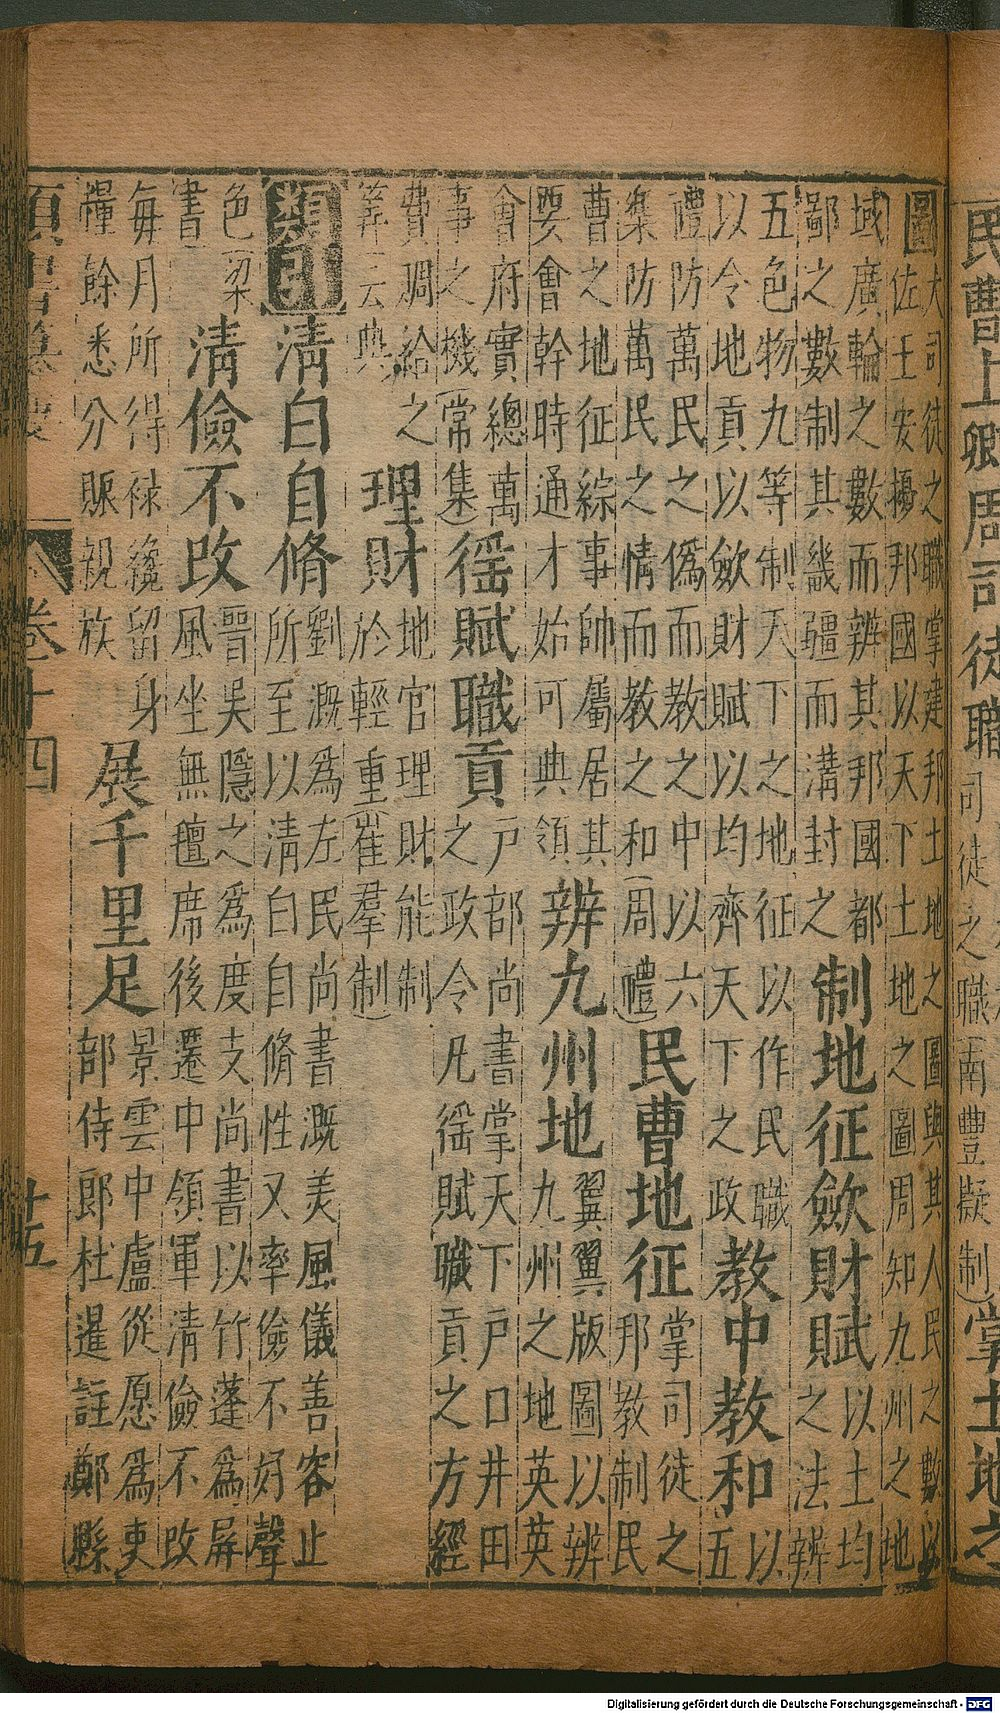 民曹上卿周司徒職
司徒之職(南豐擬制)
掌土地之
圖
大司徒之職掌建邦土地之圖與其人民之數以
佐王安擾邦國以天下土地之圖周知九州之地
域廣輪之數而辨其邦國都
鄙之數制其畿疆而溝封之
制地征斂財賦
以土均
之法辨
五色物九等制天下之地征以作民職
以令地貢以斂財賦以均齊天下之政
教中教和
以
五
禮防萬民之偽而教之中以六
集防萬民之情而教之和(周禮)
民曹地征
掌司徒之
邦教制民
曹之地征綜事帥屬居其
要會幹時通才始可典領
辨九州地
翼翼版圖以辨
九州之地英英
會府實總萬
事之機(常集)
徭賦職貢
戶部尚書掌天下戶口井田
之政令凡徭賦職貢之方經
費賙給之
筭(云典
理財
地官理財能制
於輕重(崔羣制)
類句
清白自脩
劉溉為左民尚書溉美風儀善容止
所至以清白自脩性又率儉不好聲
色(梁
書
清儉不改
晉吳隱之為度支尚書以竹蓬為屏
風坐無氈席後遷中領軍清儉不改
每月所得祿纔留身
糧餘悉分賑親族
展千里足
景雲中盧從愿為吏
部侍郎杜暹註鄭縣
類書纂要
卷十四
廿五
Digitalisierung gefördert durch die Deutsche Forschungsgemeinschaft - DFG